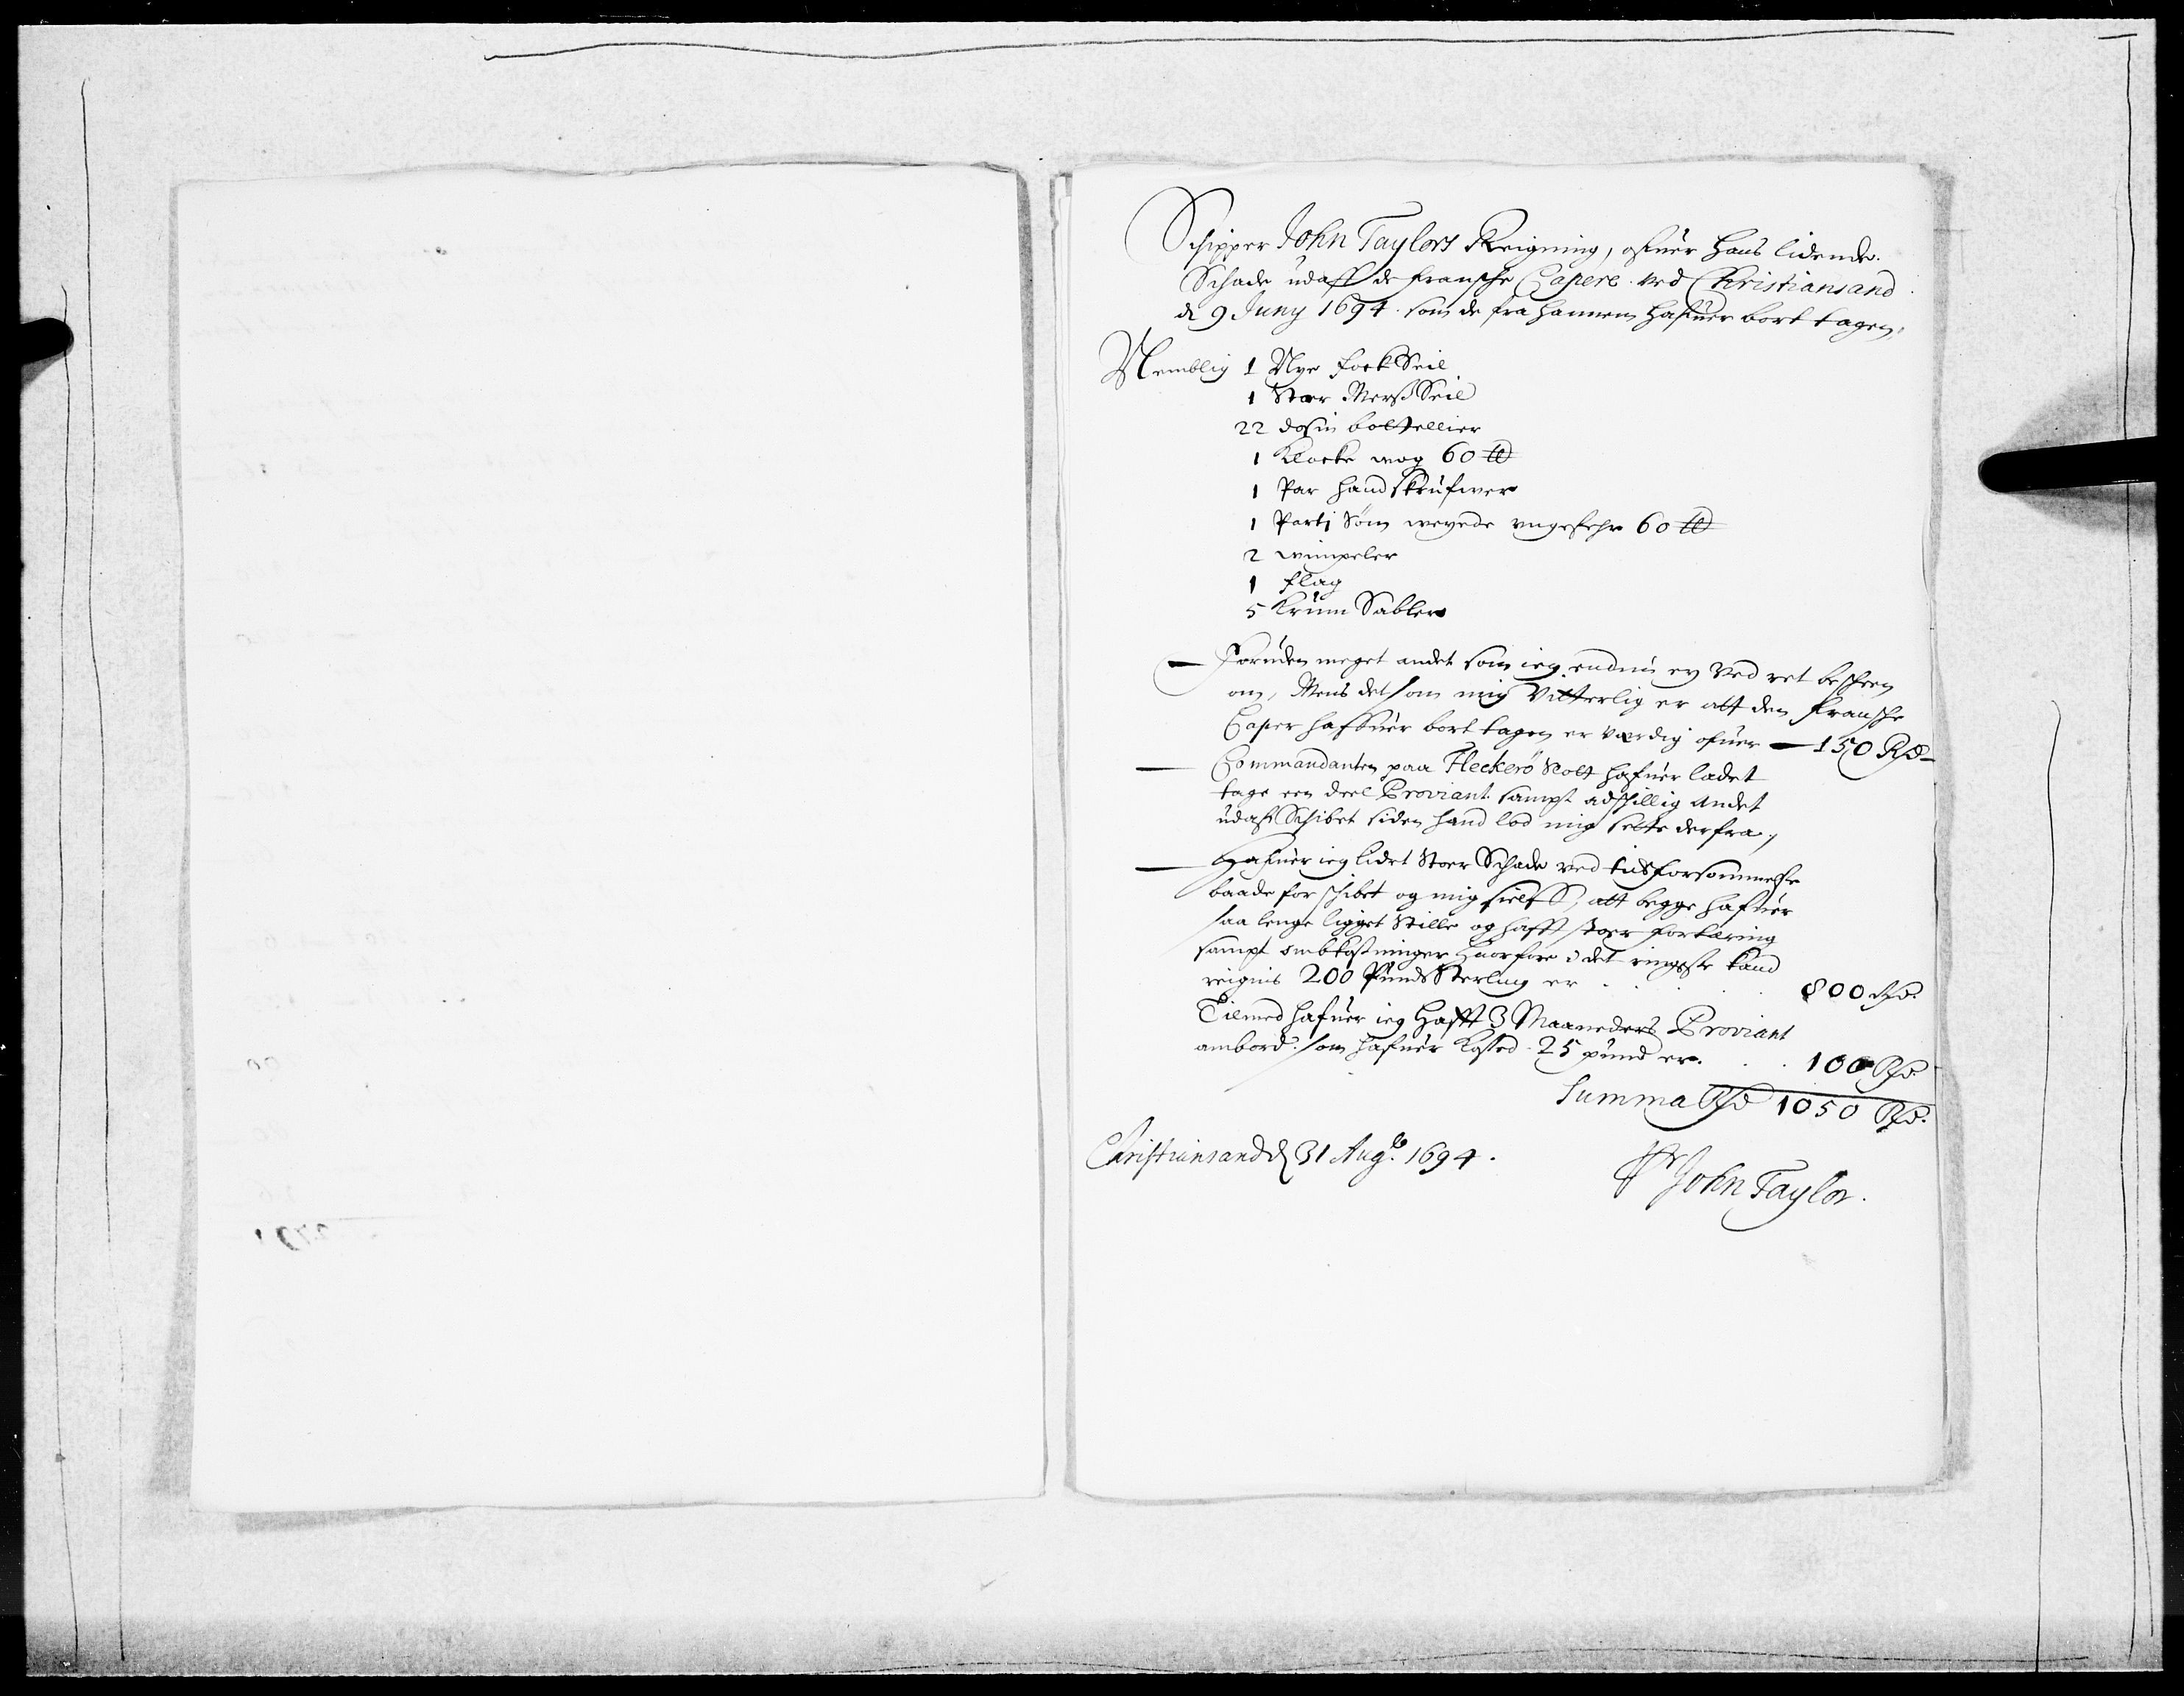 Schipper John Taylors Reigning, ofuer hans lidende
Schade udaff de fransche Capere ved Christiansand
d 9 Juny 1694. som de fra hannem hafuer bort tagen,
Nemblig 1 Nye fock Seil
1 Stor Merss Seil
22 dosin botellier
1 Klocke wog 60 ℔
1 Par handskrufwer
1 Parti Söm weyede ungefehr 60 ℔
2 wimpeler
1 flag
5 Krum Sabler
Foruden meget andet som ieg endnu ey Ved ret besheen
om, Mens det som mig Vitterlig er att den fransche
Caper haffuer bort tagen er værdig ofuer — 150 Rd
Commandanten paa Fleckerö Slott hafuer ladet
tage een deel Proviant sampt adskillig andet
udaf Schibet siden hand lod mig sette derfra,
Hafuer ieg lidet Stoer Schade ved tids forsömmelse
baade for schibet og mig sielff, att begge hafuer
saa lenge ligget Stille og hafft stoer forteering
sampt ombkostninger huorfore i det ringeste kand
reignis 200 Punds Sterling er . . . 800 Rd.
Tilmed hafuer ieg Hafft 3 Maaneders Proviant
ombord som hafuer kosted 25 pund er . . 100 Rd.
Summa Rd 1050 Rd.
Christiansand d 31 Aug. 1694.
John Taylor.